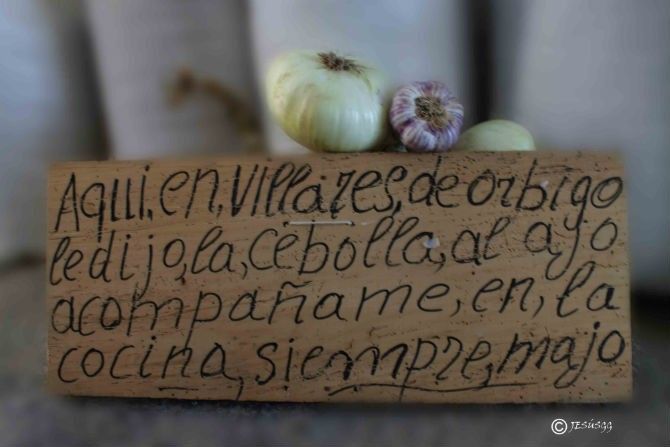 Aqui, en, Villares, de orbigo
le dijo, la, Cebolla, al ajo
acompañame, en, la
cocina, siempre, majo
© JESÚSGG